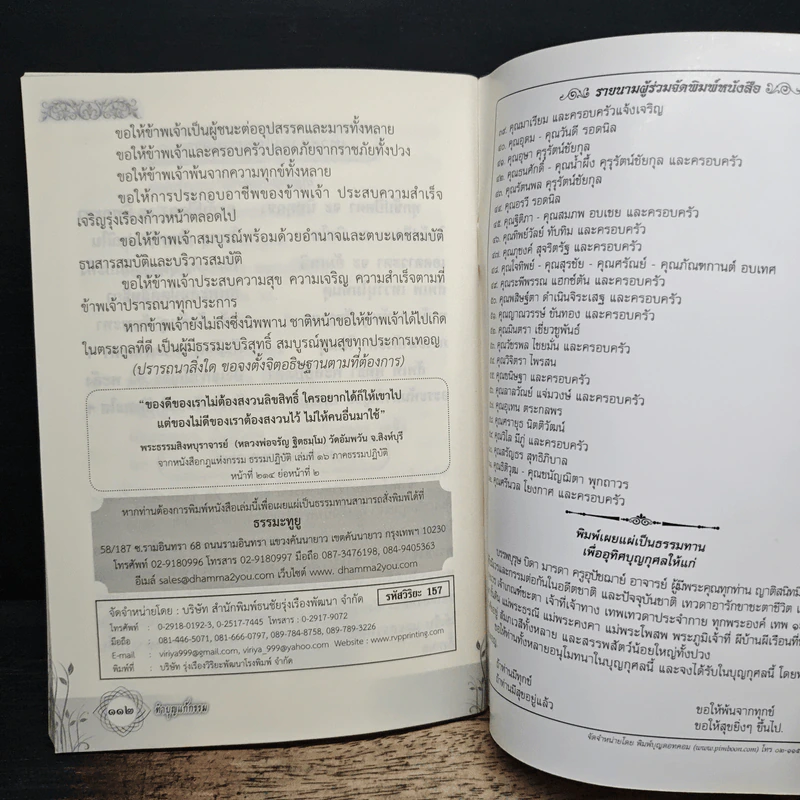 ขอให้ข้าพเจ้าเป็นผู้ชนะต่ออุปสรรคและมารทั้งหลาย
ขอให้ข้าพเจ้าและครอบครัวปลอดภัยจากราชภัยทั้งปวง
ขอให้ข้าพเจ้าพ้นจากความทุกข์ทั้งหลาย
ขอให้การประกอบอาชีพของข้าพเจ้า ประสบความสำเร็จ
เจริญรุ่งเรืองก้าวหน้าตลอดไป
ขอให้ข้าพเจ้าสมบูรณ์พร้อมด้วยอำนาจและตบะเดชสมบัติ
ธนสารสมบัติและบริวารสมบัติ
ขอให้ข้าพเจ้าประสบความสุข ความเจริญ ความสำเร็จตามที่
ข้าพเจ้าปรารถนาทุกประการ
หากข้าพเจ้ายังไม่ถึงซึ่งนิพพาน ชาติหน้าขอให้ข้าพเจ้าได้ไปเกิด
ในตระกูลที่ดี เป็นผู้มีธรรมะบริสุทธิ์ สมบูรณ์พูนสุขทุกประการเทอญ
(ปรารถนาสิ่งใด ขอจงตั้งจิตอธิษฐานตามที่ต้องการ)
"ของดีของเราไม่ต้องสงวนลิขสิทธิ์ ใครอยากได้ก็ให้เขาไป
แต่ของไม่ดีของเราต้องสงวนไว้ ไม่ให้คนอื่นมาใช้"
พระธรรมสิงหบุราจารย์ (หลวงพ่อจรัญ ฐิตธมฺโม) วัดอัมพวัน จ.สิงห์บุรี
จากหนังสือกฎแห่งกรรม ธรรมปฏิบัติ เล่มที่ ๑๖ ภาคธรรมปฏิบัติ
หน้าที่ ๒๑๔ ย่อหน้าที่ ๒
หากท่านต้องการพิมพ์หนังสือเล่มนี้เพื่อเผยแผ่เป็นธรรมทานสามารถสั่งพิมพ์ได้ที่
ธรรมะทูยู
58/187 ซ.รามอินทรา 68 ถนนรามอินทรา แขวงคันนายาว เขตคันนายาว กรุงเทพฯ 10230
โทรศัพท์ 02-9180996 โทรสาร 02-9180997 มือถือ 087-3476198, 084-9405363
อีเมล์ sales@dhamma2you.com เว็บไซต์ www. dhamma2you.com
จัดจำหน่ายโดย : บริษัท สำนักพิมพ์ธนชัยรุ่งเรืองพัฒนา จำกัด
รหัสวิริยะ 157
โทรศัพท์ : 0-2918-0192-3, 0-2517-7445 โทรสาร : 0-2917-9072
มือถือ : 081-446-5071, 081-666-0797, 089-784-8758, 089-789-3226
E-mail : viriya999@gmail.com, viriya_999@yahoo.com Website : www.rvpprinting.com
พิมพ์ที่ : บริษัท รุ่งเรืองวิริยะพัฒนาโรงพิมพ์ จำกัด
๑๑๒ ทำบุญแก้กรรม
รายนามผู้ร่วมจัดพิมพ์หนังสือ
๓๙. คุณมาเรียม และครอบครัวแจ้งเจริญ
๔๐. คุณอุดม - คุณวันดี รอดนิล
๔๑. คุณอุษา คุรุรัตน์ชัยกุล
๔๒. คุณธนศักดิ์ - คุณน้ำผึ้ง คุรุรัตน์ชัยกุล และครอบครัว
๔๓. คุณรัตนพล คุรุรัตน์ชัยกุล
๔๔. คุณอรวี รอดนิล
๔๕. คุณฐิติภา - คุณสมภพ อบเชย และครอบครัว
๔๖. คุณทิพย์วัลย์ ทับทิม และครอบครัว
๔๗. คุณภุชงค์ สุจริตรัฐ และครอบครัว
คุณใจทิพย์ - คุณสุรชัย - คุณศรัณย์ - คุณภัณฑกานต์ อบเทศ
คุณระพีพรรณ แอกซ์ตัน และครอบครัว
คุณพสิษฐ์ตา ดำเนินจิระเสฐ และครอบครัว
คุณญาณวรรษ์ ขันทอง และครอบครัว
คุณมินตรา เชี่ยวชูพันธ์
คุณวัชรพล ไชยมั่น และครอบครัว
คุณวิจิตรา ไพรสน
คุณขนิษฐา และครอบครัว
คุณลาลวัณย์ แจ่มวงษ์ และครอบครัว
คุณอุเทน ตระกลพร
คุณศรายุธ นิตติวัฒน์
คุณวิไล มีภู่ และครอบครัว
คุณสรัญธร สุทธิภิบาล
คุณธิติวุฒ - คุณชนัญณิตา พุกถาวร
คุณศรีนวล โยงกาศ และครอบครัว
พิมพ์เผยแผ่เป็นธรรมทาน
เพื่ออุทิศบุญกุศลให้แก่
บรรพบุรุษ บิดา มารดา ครูอุปัชฌาย์ อาจารย์ ผู้มีพระคุณทุกท่าน ญาติสนิทมิ
และกรรมต่อกันในอดีตชาติ และปัจจุบันชาติ เทวดาอารักขาชะตาชีวิต
เจ้าเกณฑ์ชะตา เจ้าที่เจ้าทาง เทพเทวดาประจำกาย ทุกพระองค์ เทพ
แม่พระธรณี แม่พระคงคา แม่พระโพสพ พระภูมิเจ้าที่ ผีบ้านผีเรือนที่
สัมภเวสีทั้งหลาย และสรรพสัตว์น้อยใหญ่ทั้งปวง
ขอให้ท่านทั้งหลายอนุโมทนาในบุญกุศลนี้ และจงได้รับในบุญกุศลนี้ โดย
ถ้าท่านมีทุกข์
ขอให้พ้นจากทุกข์
ถ้าท่านมีสุขอยู่แล้ว
ขอให้สุขยิ่งๆ ขึ้นไป.
จัดจำหน่ายโดย พิมพ์บุญดอทคอม (www.pimboon.com) โทร